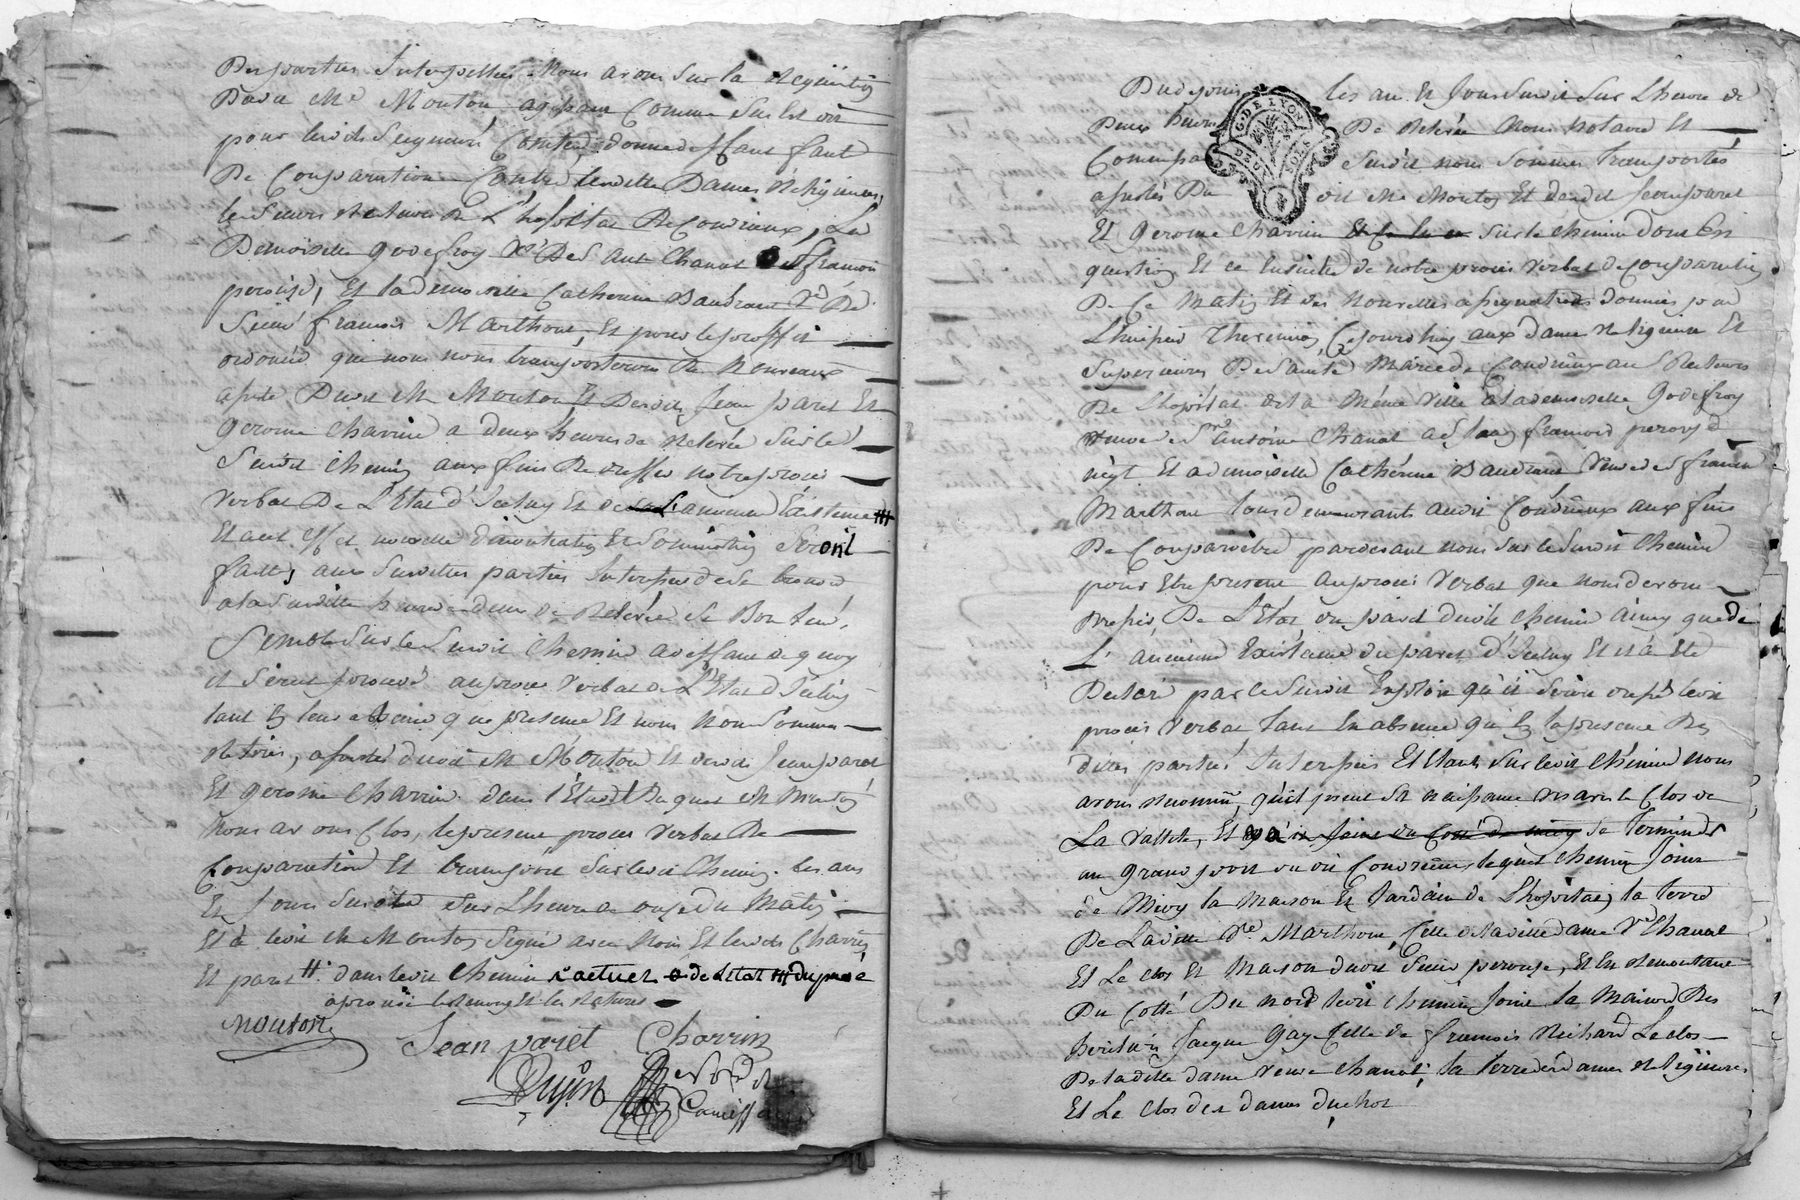 Des parties Interpellées Nous avons sur la Requisition
Dudit Me Mouton agissant Comme Sus Est dit
pour lesdits Seigneurs Comtes, donné deffaut faute
De Comparution Contre lesdittes Dames Religieuses,
les Sieurs Recteurs De L'hopital De Condrieux, La
Demoiselle godefroy Ve De S Ant Chanal françois
perouze, Et la demoiselle Catherine Daudrant Ve De
Sieur françois Marthoud, Et pour le proffit
ordonné que nous nous transporterons De Nouveaux
assisté Dudit Me Mouton Et Desdits Jean paret Et
gerome Charrin a deux heures de Relevée Sur le
Susdit Chemin aux fins De dresser notre procès
Verbal De L'Etat d'Icelui Et de L'ancienne Existence
Et a cet effet nouvelle Seront
faittes aux Susdittes parties Interpellées de Se trouver
a la Susditte heure deux de Relevée Si Bon leur
Semble Sur le Susdit Chemin a deffaut de quoy
il Serat procedé au procès Verbal de L'Etat d'Iceluy
tant En leur absence que presence Et nous Nous Sommes
Retirés, assistés dudit Me Mouton Et desdits Jean paret
Et gerome Charrin. dans l'Etat Duquel Me Mouton
Nous avons Clos, le present procès Verbal De
Comparution Et transport Sur ledit Chemin. les ans
Et Jour Susdits Sur L'heure de onze du Matin
Et a ledit Me Mouton Signé avec Nous Et lesdits Charrin
Et paret dans ledit Chemin actuel de L'etat
approuvé les renvoy Et les ratures
Mouton
Jean paret Charrin
Dujon
Commissaire
Du depuis les an Et Jour Susdit Sur L'heure de
Deux heures De Relevée Nous Notaire Et
G. DE LYON
DEUX SOLS
Commissaire Susdit nous Sommes transportés
assistés Du dit Me Mouton Et desdit Jean paret
Et gerome Charrin Sur le Chemin dont En
question Et En Ensuitte de notre procès Verbal de Comparution
De Ce Matin Et des Nouvelles assignations données par
L'huissier Thevenin Cejourd'huy aux dames Religieuses Et
Superieures De Sainte Marie de Condrieux aux Recteurs
De L'hopital de la Même Ville a la demoiselle Godefroy
veuve de Sr antoine Chanal a Sieur francois perouze
negt Et a demoiselle Catherine Daudrant Veuve de S francois
Marthoud tous demeurants audit Condrieux aux fins
De Comparoitre pardevant nous Sur le Susdit Chemin
pour Etre present au procès Verbal que nous devons
Dresser De L'Etat du dudit Chemin ainsy que de
L'ancienne Existence d'Iceluy Et a Eté
Declaré par le Susdit Exploit qu'il Seroit dressé ledit
procès Verbal tant En absence qu'En la presence Des
dittes parties Interpellées Et Etant Sur ledit Chemin nous
avons reconnu, qu'il prend Sa naissance vis avis le Clos de
La Vallette, Et Se Termine
au grand port dudit Condrieux lequel Chemin Joint
de Midy la Maison Et Jardin de L'hopital, la terre
De Laditte Dlle Marthoud, Celle de laditte dame Ve Chanal
Et Le clos Et Maison dudit Sieur perouze, Et En Remontant
Du Cotté Du nord ledit Chemin Joint la Maison Des
heritiers Jacque Gay Celle de francois Richard Le clos
De laditte dame Veuve Chanal, la terre des dames Religieuses
Et Le Clos des dames